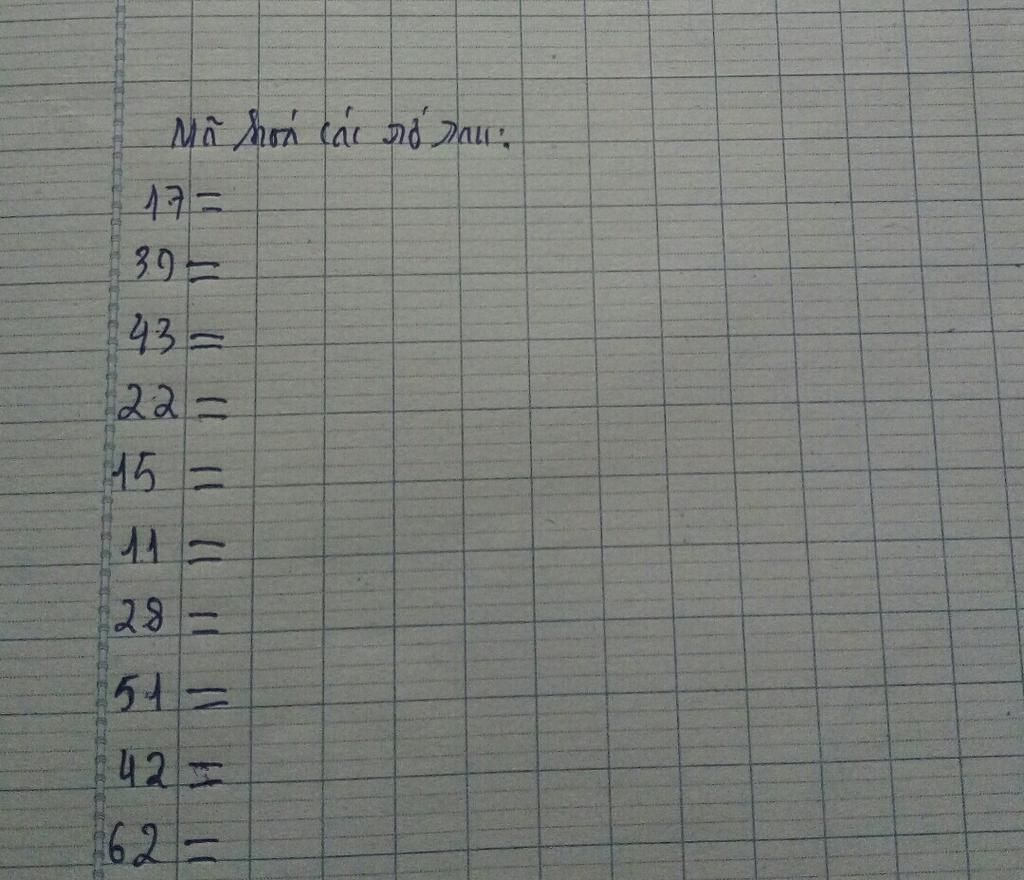 Mã hoá các số sau:
17 =
39 =
43 =
22 =
15 =
11 =
28 =
51 =
42 =
62 =